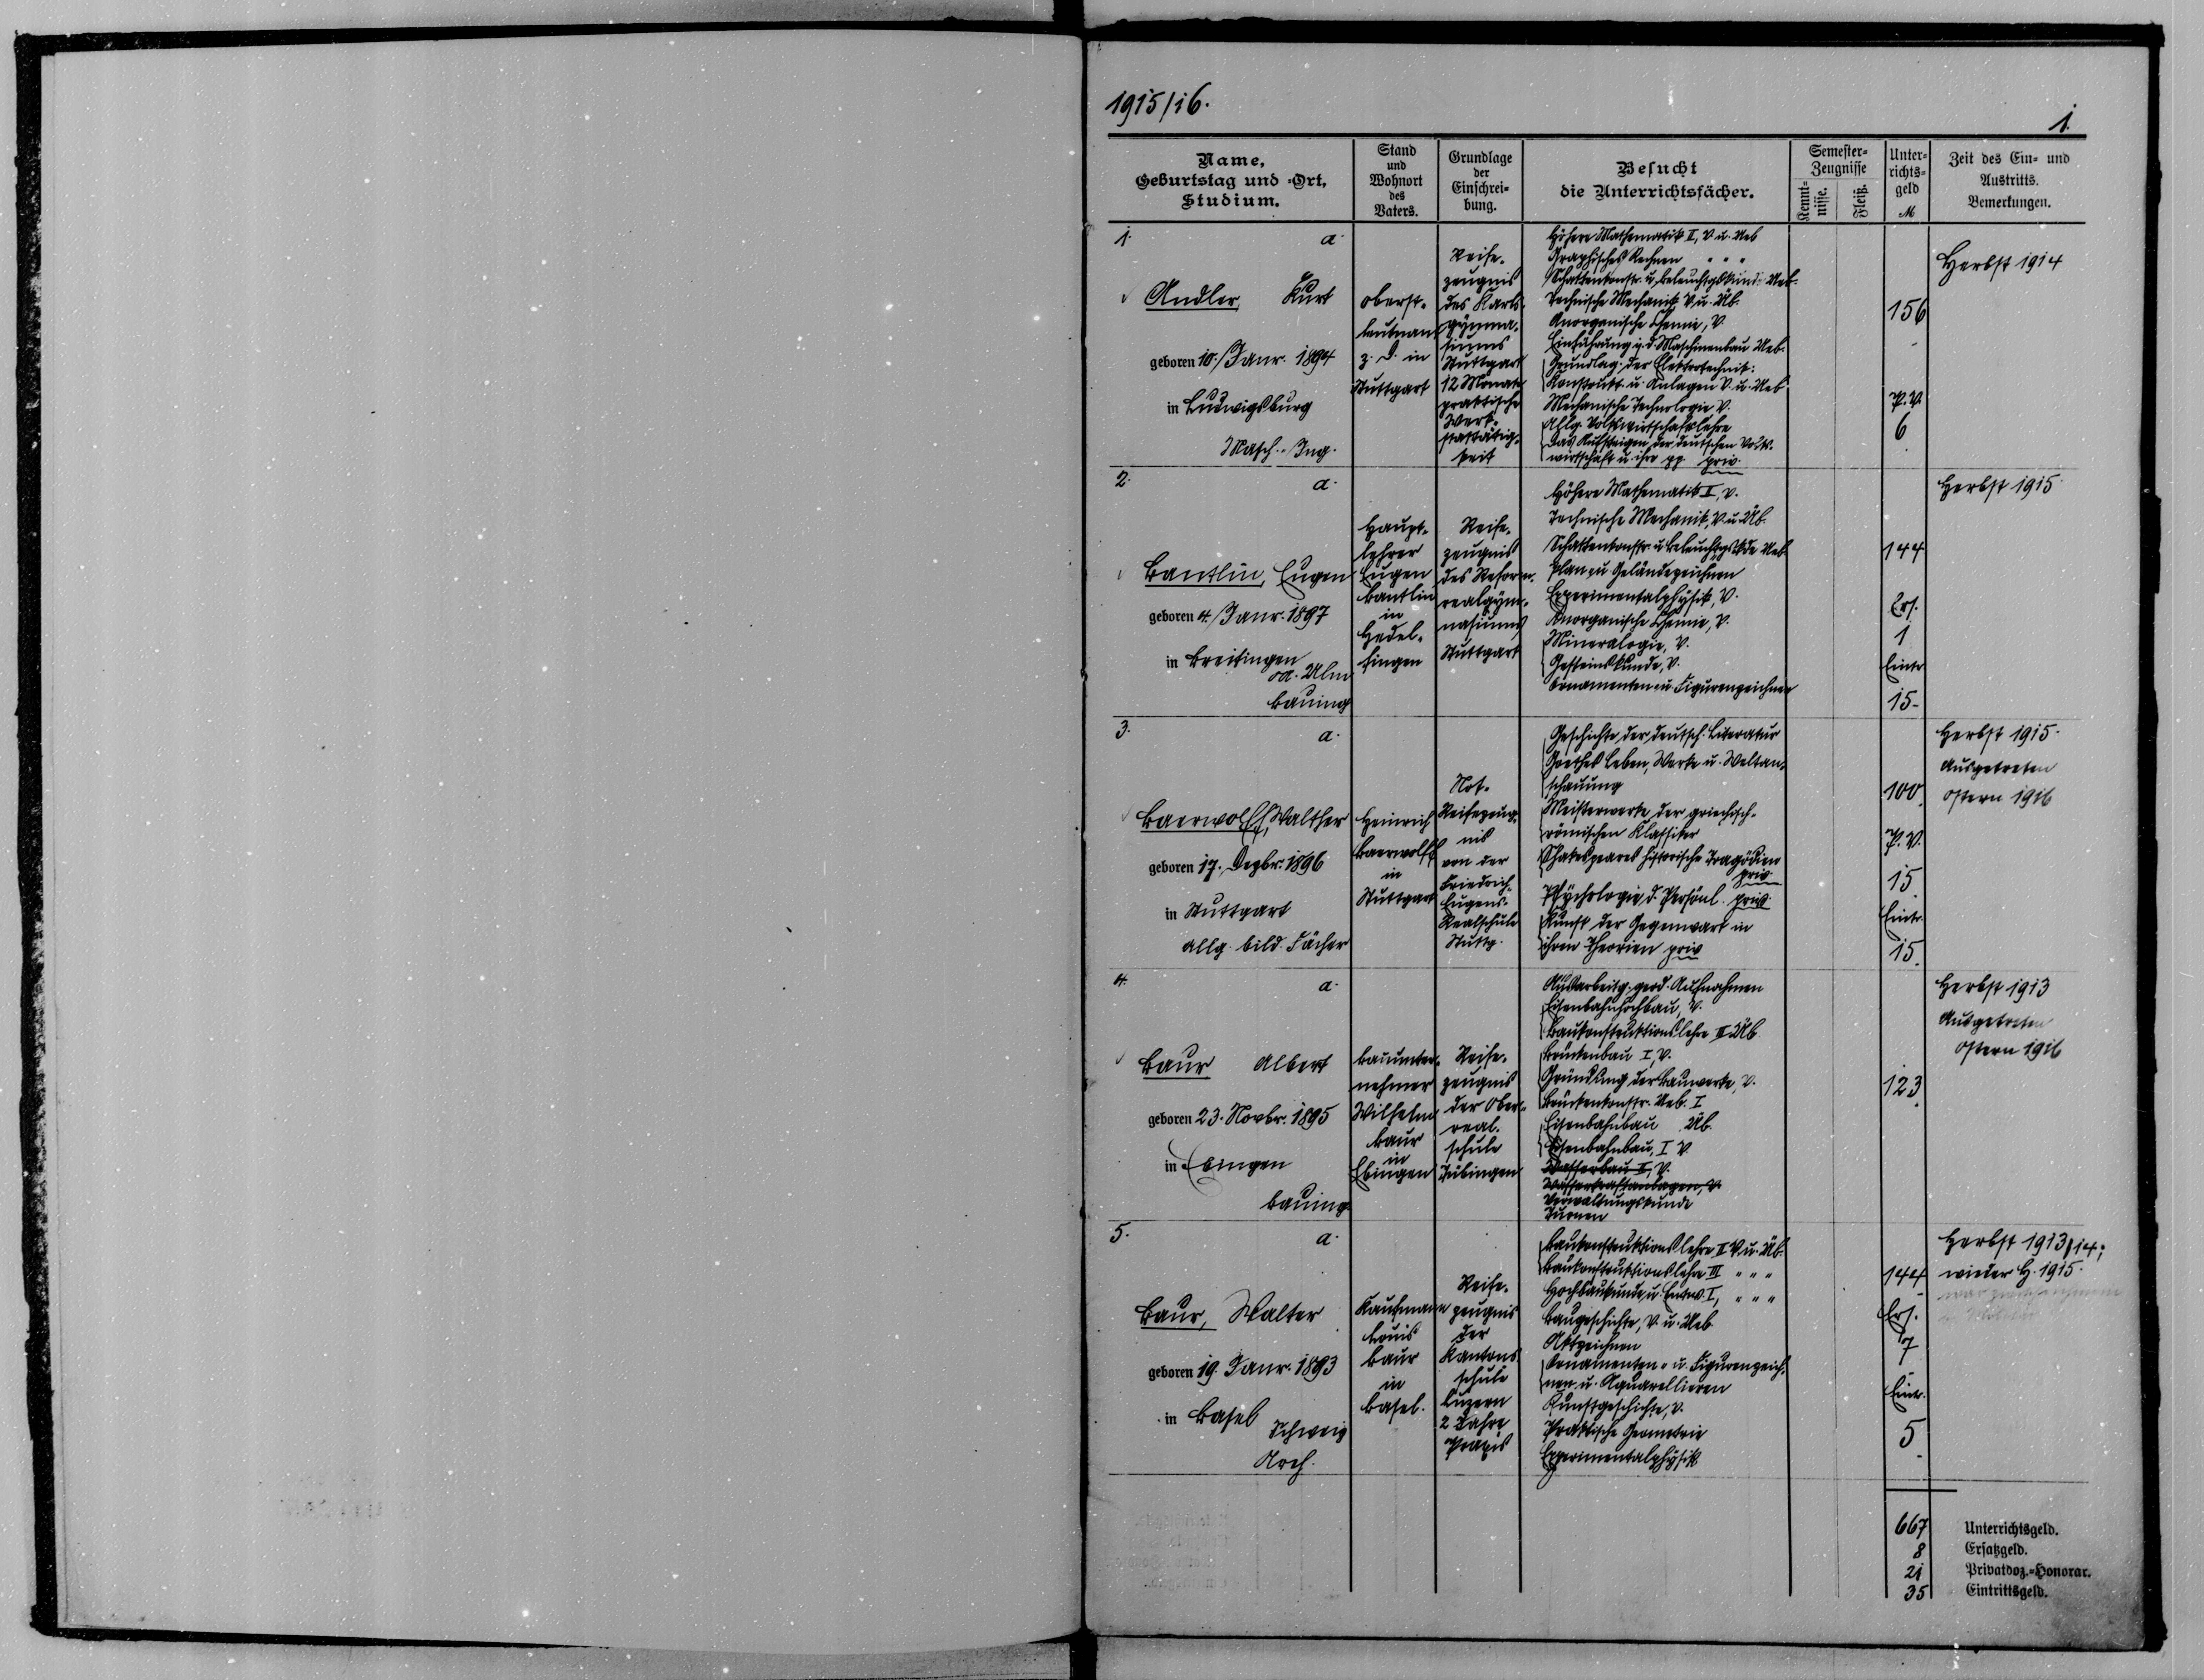 1915/16.
1.
Name,
Geburtstag und -Ort,
Studium.
Stand
und
Wohnort
des
Vaters.
Grundlage
der
Einschrei-
bung.
Besucht
die Unterrichtsfächer.
Semester-
Zeugnisse
Kennt-
nisse.
Fleiß.
Unter-
richts-
geld
M
Zeit des Ein- und
Austritts.
Bemerkungen.
1. a.
Andler, Kurt
geboren 10. Janr. 1894
in Ludwigsburg
Masch.-Ing.
Oberst-
leutnant
z. D. in
Stuttgart
Reife-
zeugnis
des Karls-
gymna-
siums
Stuttgart
12 Monate
praktische
Werk-
stattätig-
keit
Höhere Mathematik II, V. u. Ueb
Graphisches Rechnen " " "
Schattenkonstr. u. Beleuchtgskunde Ueb.
Technische Mechanik V. u. Üb.
Anorganische Chemie, V.
Einführung i. d. Maschinenbau Ueb.
Grundlag. der Elektrotechnik:
Konstrukt. u. Anlagen V. u. Ueb
Mechanische Technologie V.
Allg. Volkswirtschaftslehre
Das Aufsteigen der deutschen Volks-
wirtschaft u. ihre pp priv.
156
P. V.
6
Herbst 1914
2. a.
Bantlin, Eugen
geboren 4. Janr. 1897
in Breitingen
OA. Ulm
Bauing
Haupt-
lehrer
Eugen
Bantlin
in
Hedel-
fingen
Reife-
zeugnis
des Reform-
realgym-
nasiums
Stuttgart
Höhere Mathematik I, V.
Technische Mechanik, V. u. Üb.
Schattenkonstr. u. Beleuchtgskde Ueb.
Plan- u. Geländezeichnen
Experimentalphysik, V.
Anorganische Chemie, V.
Mineralogie, V.
Gesteinskunde, V.
Ornamenten- u. Figurenzeichnen
144
Ers.
1
Eintr
15-
Herbst 1915
3. a.
Baerwolff, Walther
geboren 17. Dezbr. 1896
in Stuttgart
allg. bild. Fächer
Heinrich
Baerwolff
in
Stuttgart
Not-
Reifezeug-
nis
von der
Friedrich-
Eugens-
Realschule
Stuttg.
Geschichte der deutsch. Literatur
Goethes Leben, Werke u. Weltan-
schauung
Meisterwerke der griechisch-
römischen Klassiker
Shakespeares historische Tragödien
priv.
Psychologie d. Persönl. priv.
Kunst der Gegenwart in
ihren Theorien priv
100.
P. V.
15
Eintr.
15.
Herbst 1915.
Ausgetreten
Ostern 1916
4. a.
Baur Albert
geboren 23. Novbr. 1895
in Ebingen
Bauing.
Bauunter-
nehmer
Wilhelm
Baur
in
Ebingen
Reife-
zeugnis
der Ober-
real-
schule
Tübingen
Ausarbeitg. geod. Aufnahmen
Eisenbahnhochbau, V.
Baukonstruktionslehre II Üb
Brückenbau I, V.
Gründung der Bauwerke, V.
Brückenkonstr. Ueb. I
Eisenbahnbau Üb.
Eisenbahnbau, I V.
Wasserbau II, V.
Wasserkraftanlagen, V.
Verwaltungskunde
Turnen
123.
Herbst 1913
Ausgetreten
Ostern 1916
5. a.
Baur, Walter
geboren 19. Janr. 1893
in Basel
Schweiz
Arch.
Kaufmann
Louis
Baur
in
Basel.
Reife-
zeugnis
der
Kantons
schule
Luzern
2 Jahre
Praxis
Baukonstruktionslehre II V. u. Üb.
Baukonstruktionslehre III " " "
Hochbaukunde u. Entw. I, " " "
Baugeschichte, V. u. Ueb
Aktzeichnen
Ornamenten- u. Figurenzeich-
nen u. Aquarellieren
Kunstgeschichte, V.
Praktische Geometrie
Experimentalphysik
144
Ers.
7
Eintr.
5
Herbst 1913/14;
wieder H. 1915.
667 Unterrichtsgeld.
8 Ersatzgeld.
21 Privatdoz.-Honorar.
35 Eintrittsgeld.